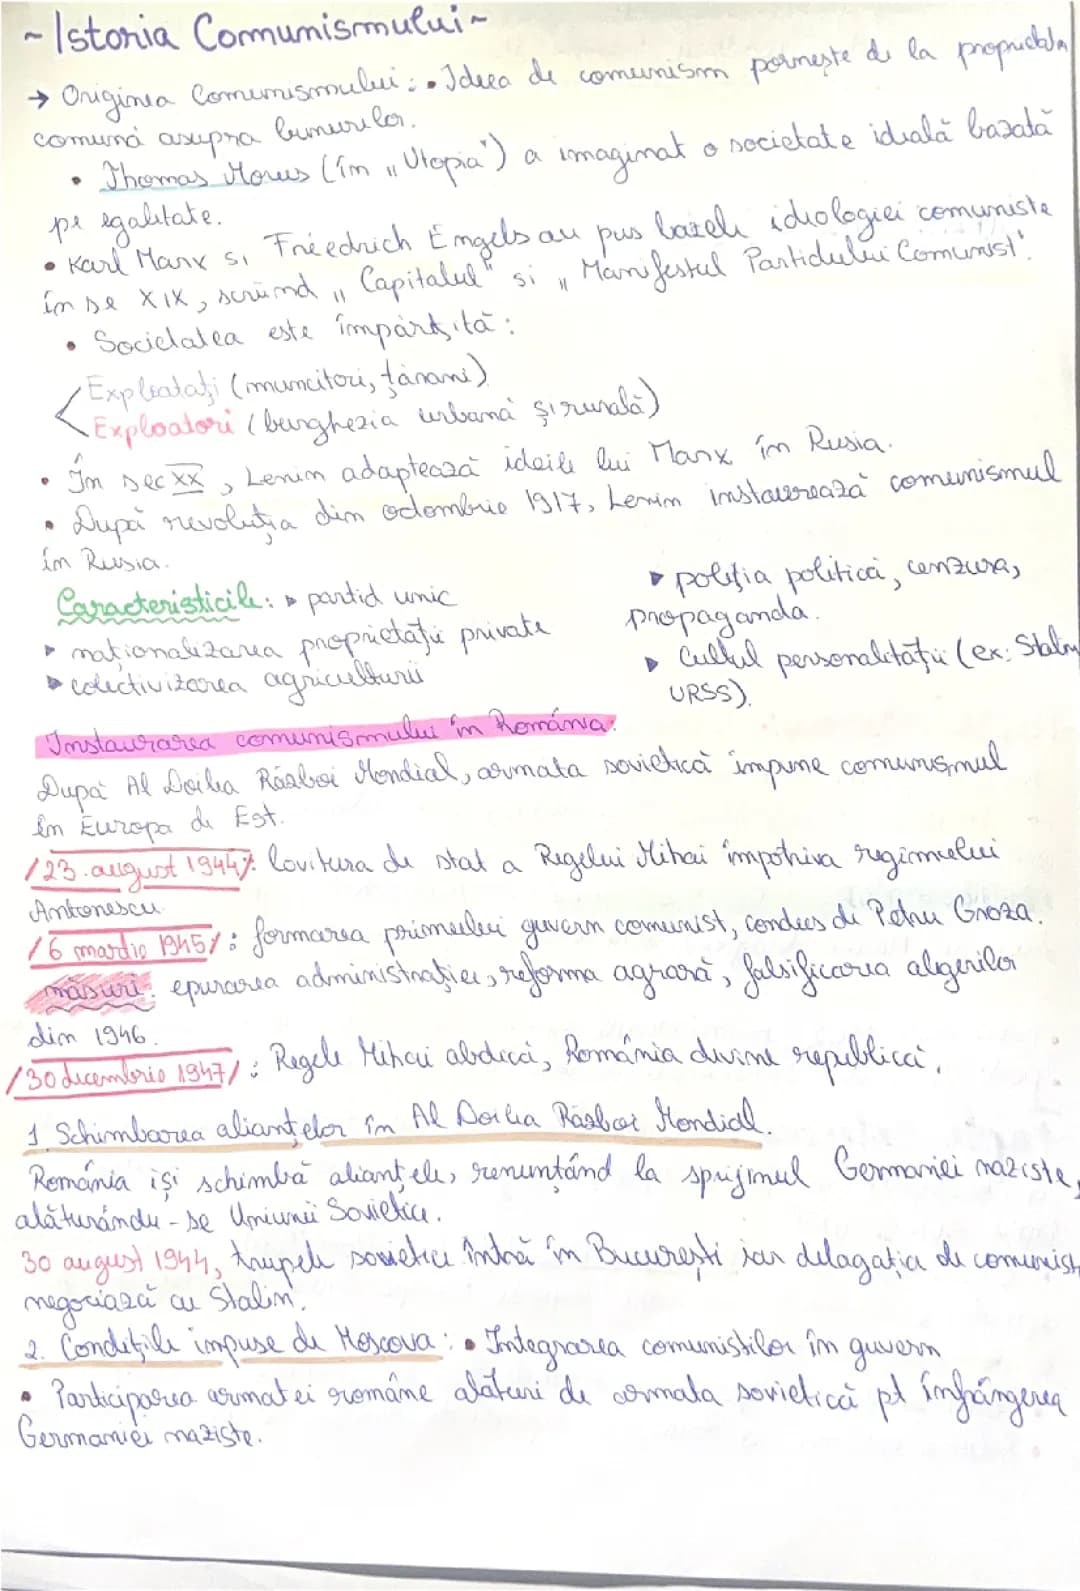 ~ Istoria Comunismului ~
→ Originea Comunismului: • Ideea de comunism pornește de la proprietatea
comună asupra bunurilor.
• Thomas Morus (în „Utopia") a imaginat o societate ideală bazată
pe egalitate.
• Karl Marx si Friedrich Engels au pus bazele ideologiei comuniste
în se XIX, scriind „Capitalul" si „Manifestul Partidului Comunist".
• Societatea este împărțită:
Exploatați (muncitori, țărani)
Exploatori (burghezia urbană și rurală)
• În sec XX, Lenin adaptează ideile lui Marx în Rusia.
• După revoluția din octombrie 1917, Lenin instaurează comunismul
în Rusia.
Caracteristicile: ▸ partid unic
▸ naționalizarea proprietății private
▸ colectivizarea agriculturii
▸ poliția politică, cenzura,
propaganda.
▸ Cultul personalității (ex: Stalin
URSS).
Instaurarea comunismului în România:
După Al Doilea Război Mondial, armata sovietică impune comunismul
în Europa de Est.
/23 august 1944/: lovitura de stat a Regelui Mihai împotriva regimului
Antonescu.
/6 martie 1945/: formarea primului guvern comunist, condus de Petru Groza.
măsuri: epurarea administrației, reforma agrară, falsificarea alegerilor
din 1946.
/30 decembrie 1947/: Regele Mihai abdică, România devine republică.
1 Schimbarea alianțelor în Al Doilea Război Mondial.
România iși schimbă alianțele, renunțând la sprijinul Germaniei naziste,
alăturându-se Uniunii Sovietice.
30 august 1944, trupele sovietice intră în București iar delagația de comuniști
negociază cu Stalin.
2. Condițiile impuse de Moscova: • Integrarea comuniștilor în guvern
• Participarea armatei române alături de armata sovietică pt înfrângerea
Germaniei naziste.